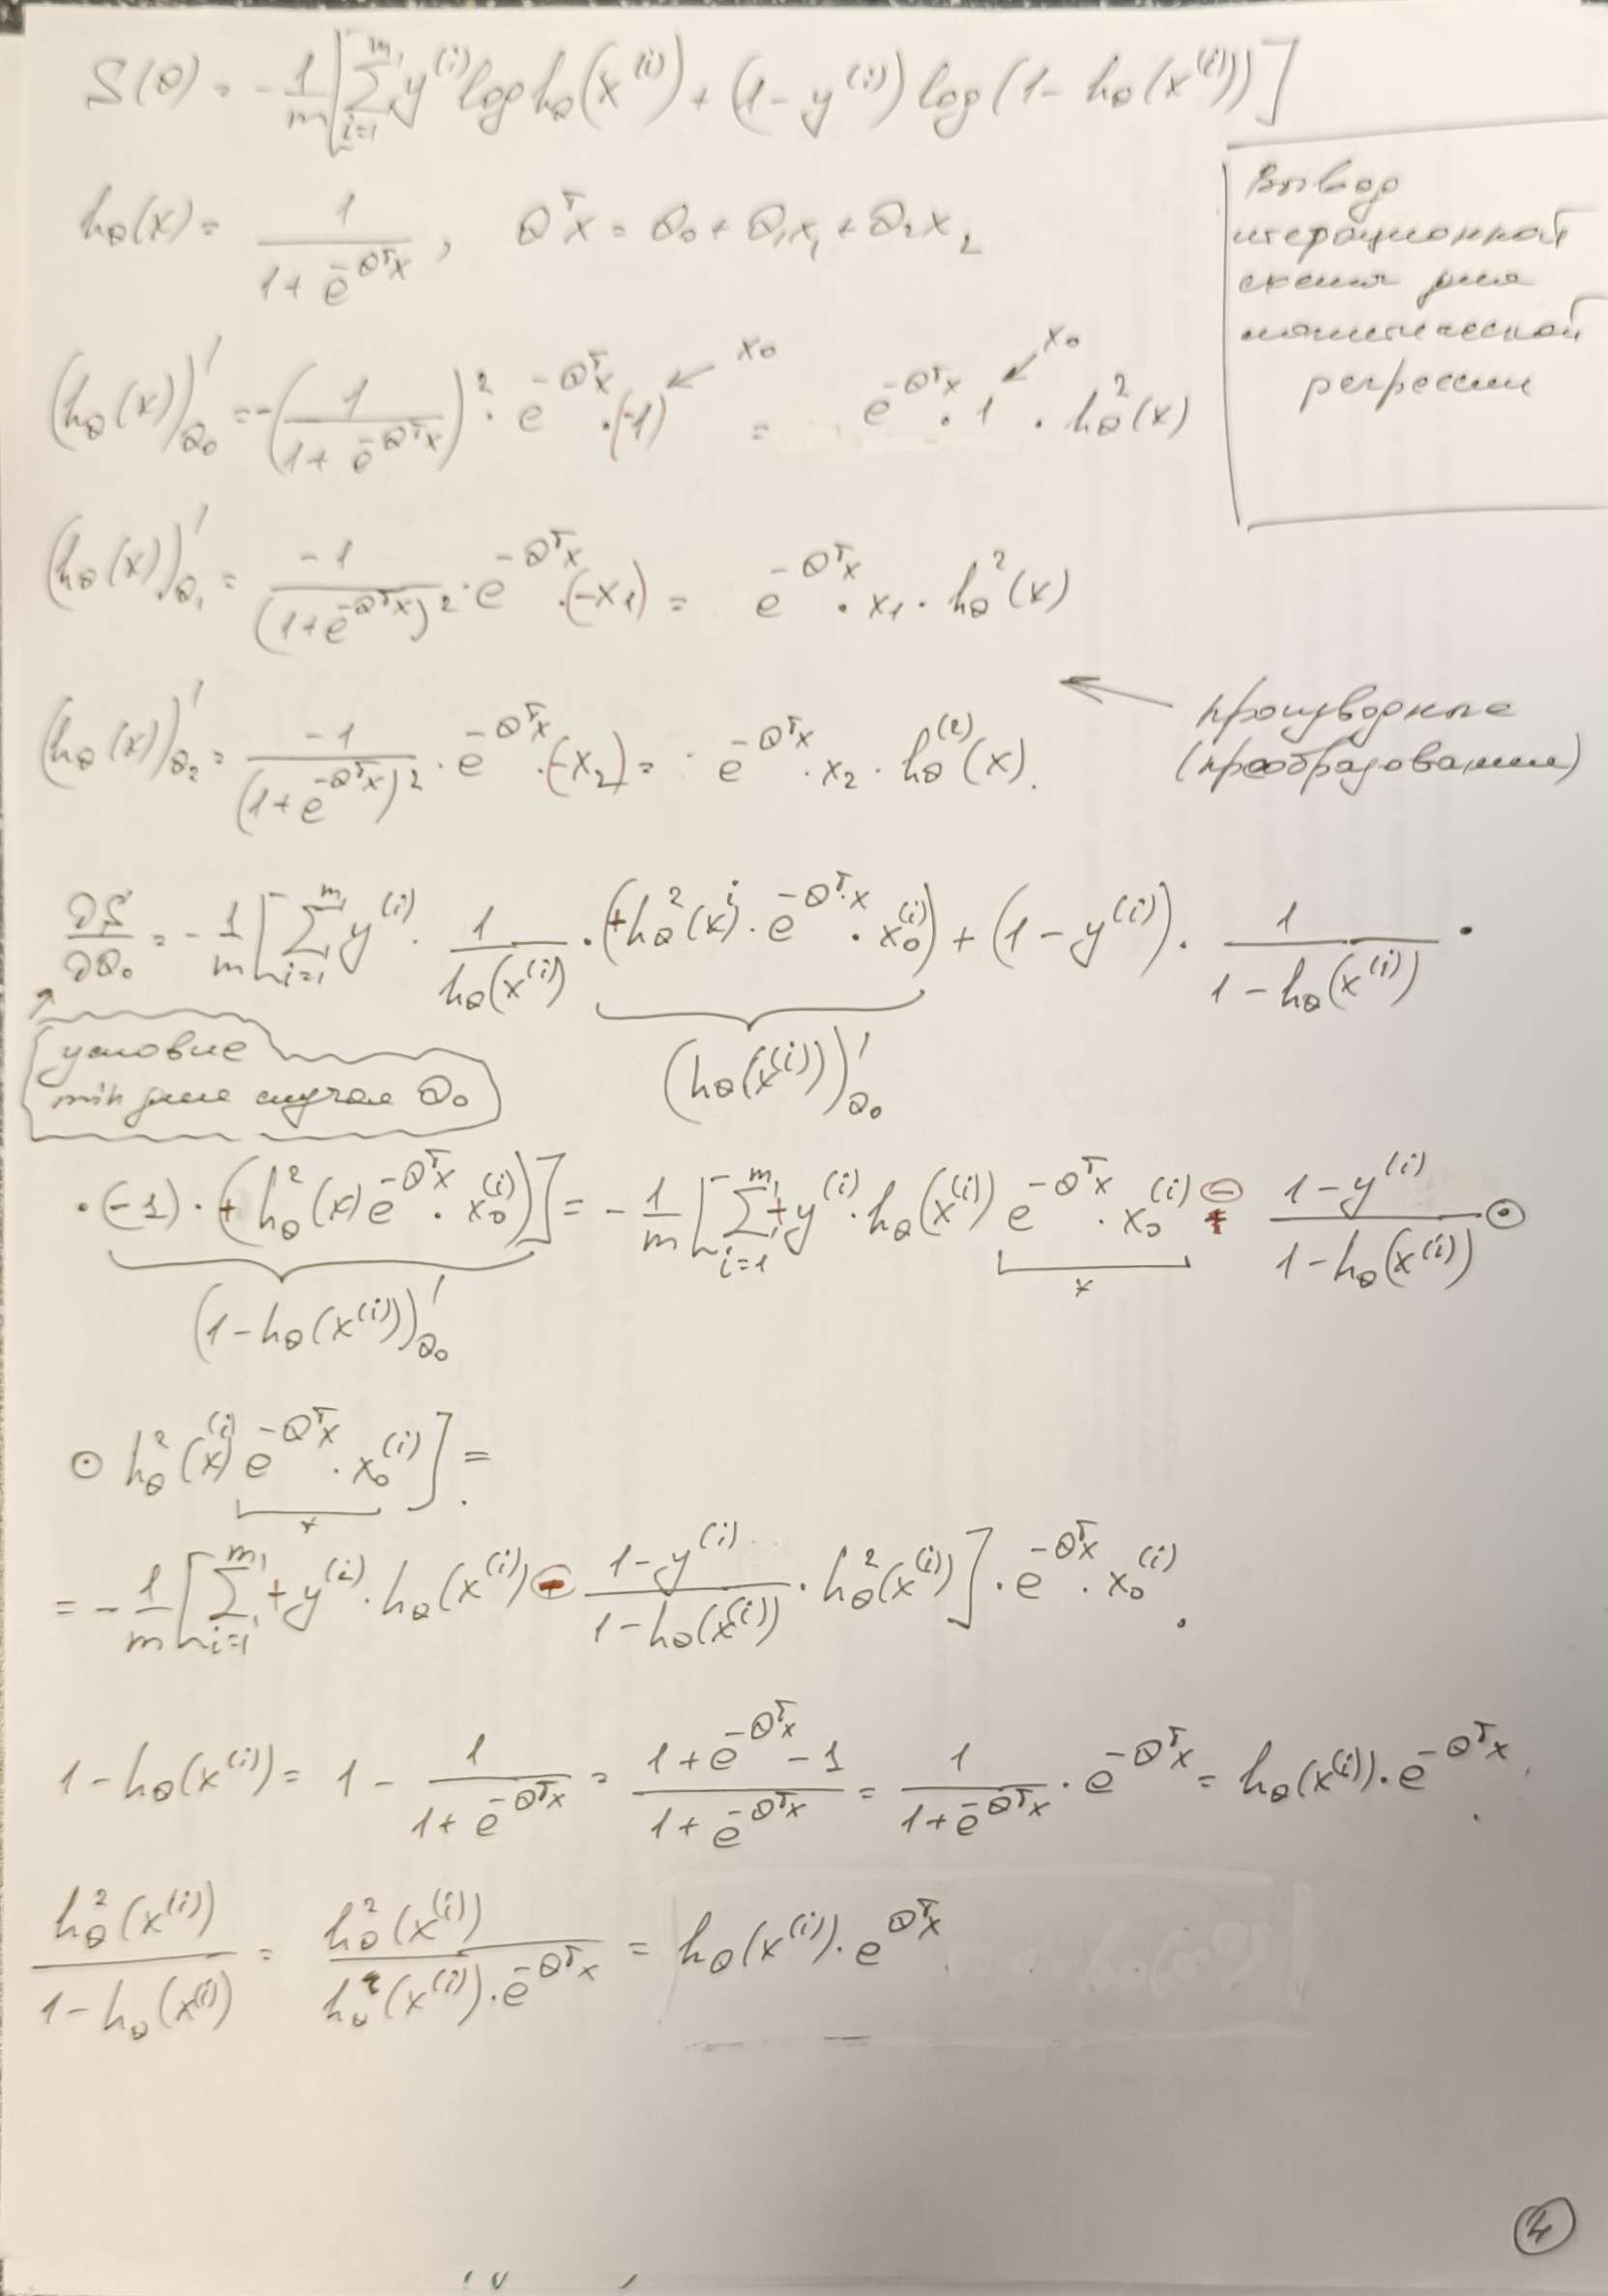 S(θ) = - 1/m [ Σ_{i=1}^{m} y^{(i)} log h_θ(x^{(i)}) + (1 - y^{(i)}) log(1 - h_θ(x^{(i)})) ]
Вывод
итерационной
схемы для
логистической
регрессии
h_θ(x) = 1/(1 + e^{-θ^T x}), θ^T x = θ_0 + θ_1 x_1 + θ_2 x_2
(h_θ(x))'_{θ_0} = -(1/(1 + e^{-θ^T x}))^2 · e^{-θ^T x} · (-1) ← x_0 = e^{-θ^T x} · 1 ← x_0 · h_θ^2(x)
(h_θ(x))'_{θ_1} = -1/(1 + e^{-θ^T x})^2 · e^{-θ^T x} · (-x_1) = e^{-θ^T x} · x_1 · h_θ^2(x)
(h_θ(x))'_{θ_2} = -1/(1 + e^{-θ^T x})^2 · e^{-θ^T x} · (-x_2) = e^{-θ^T x} · x_2 · h_θ^{(2)}(x).
← производные
(преобразования)
∂S/∂θ_0 = - 1/m [ Σ_{i=1}^{m} y^{(i)} · 1/h_θ(x^{(i)}) · (+h_θ^2(x^i) · e^{-θ^T·x} · x_0^{(i)}) + (1 - y^{(i)}) · 1/(1 - h_θ(x^{(i)})) ·
(h_θ(x^{(i)}))'_{θ_0}
условие
min для случая θ_0
· (-1) · (+ h_θ^2(x) e^{-θ^T x} · x_0^{(i)}) ] = - 1/m [ Σ_{i=1}^{m} + y^{(i)} · h_θ(x^{(i)}) e^{-θ^T x} · x_0^{(i)} ⊖ + (1 - y^{(i)})/(1 - h_θ(x^{(i)})) ⊙
x
(1 - h_θ(x^{(i)}))'_{θ_0}
⊙ h_θ^2(x^{(i)}) e^{-θ^T x} · x_0^{(i)} ] =
x
= - 1/m [ Σ_{i=1}^{m} + y^{(i)} · h_θ(x^{(i)}) ⊖ (1 - y^{(i)})/(1 - h_θ(x^{(i)})) · h_θ^2(x^{(i)}) ] · e^{-θ^T x} · x_0^{(i)}.
1 - h_θ(x^{(i)}) = 1 - 1/(1 + e^{-θ^T x}) = (1 + e^{-θ^T x} - 1)/(1 + e^{-θ^T x}) = 1/(1 + e^{-θ^T x}) · e^{-θ^T x} = h_θ(x^{(i)}) · e^{-θ^T x}.
h_θ^2(x^{(i)})/(1 - h_θ(x^{(i)})) = h_θ^2(x^{(i)})/(h_θ(x^{(i)}) · e^{-θ^T x}) = h_θ(x^{(i)}) · e^{θ^T x}